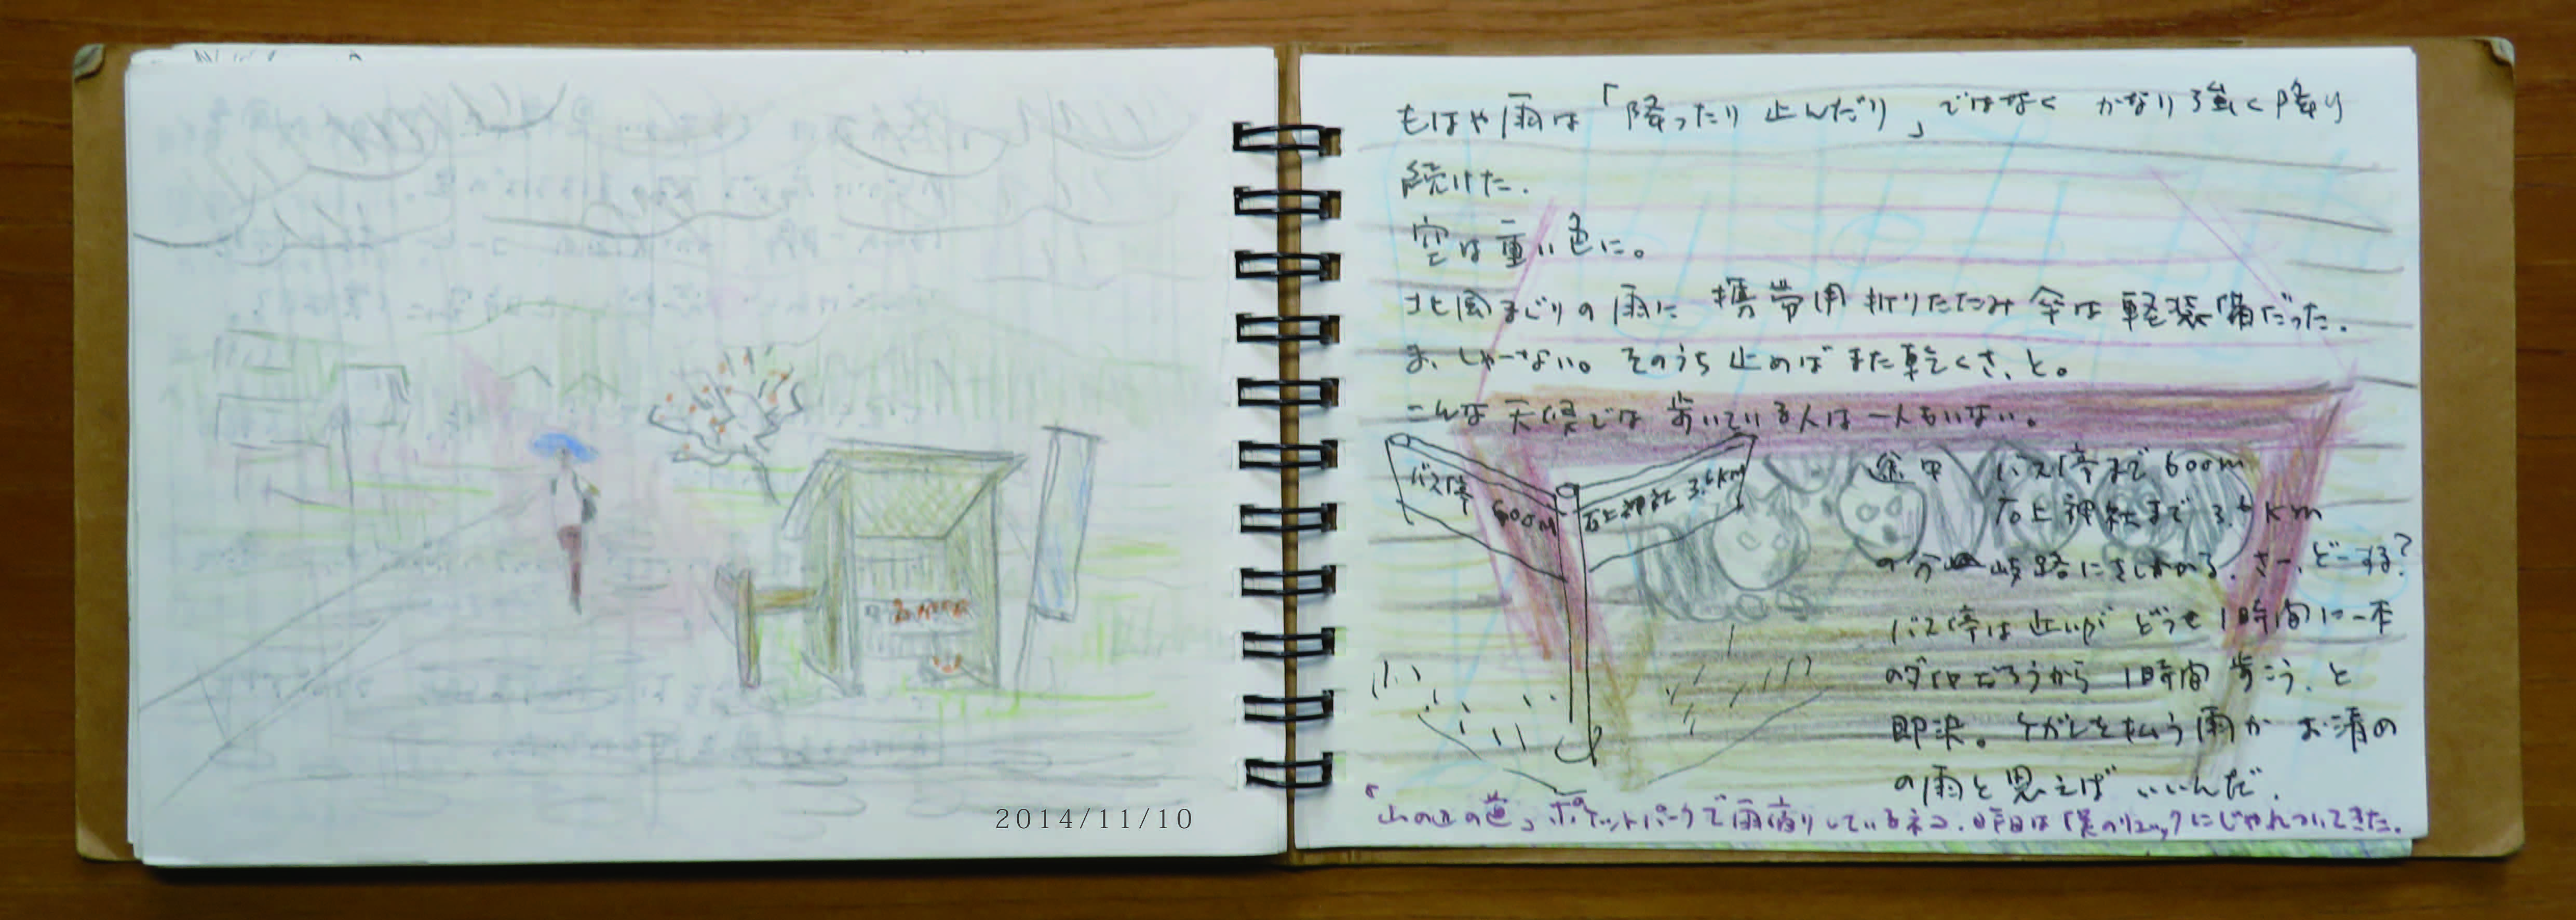 2014/11/10
もはや雨は「降ったり止んだり」ではなく かなり強く降り
続けた.
空は重い色に。
北風まじりの雨に 携帯用折りたたみ傘は軽装備だった.
ま、しゃーない。そのうち止めばまた乾くさ、と。
こんな天候では 歩いている人は一人もいない。
バス停 600m
石上神社 3.6km
途中 バス停まで600m
石上神社まで3.6km
の分岐路にさしかかる. さー、どーする?
バス停は近いが どうせ1時間に一本
のダイヤだろうから 1時間歩こう、と
即決。ケガレを払う雨か お清め
の雨と思えば いいんだ.
「山の辺の道」ポケットパークで雨宿りしているネコ. 昨日は僕のリュックにじゃれついてきた.